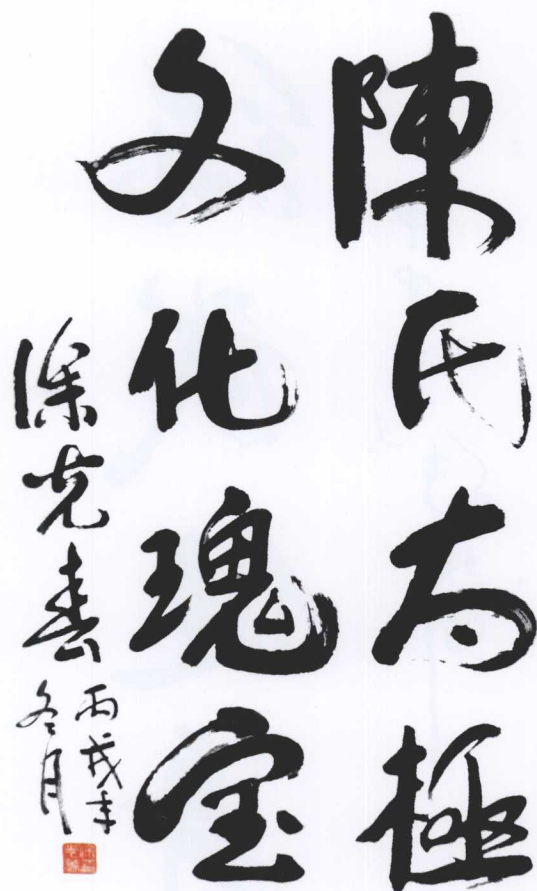 陳氏太極
文化瑰宝
徐光春
丙戌年
冬月